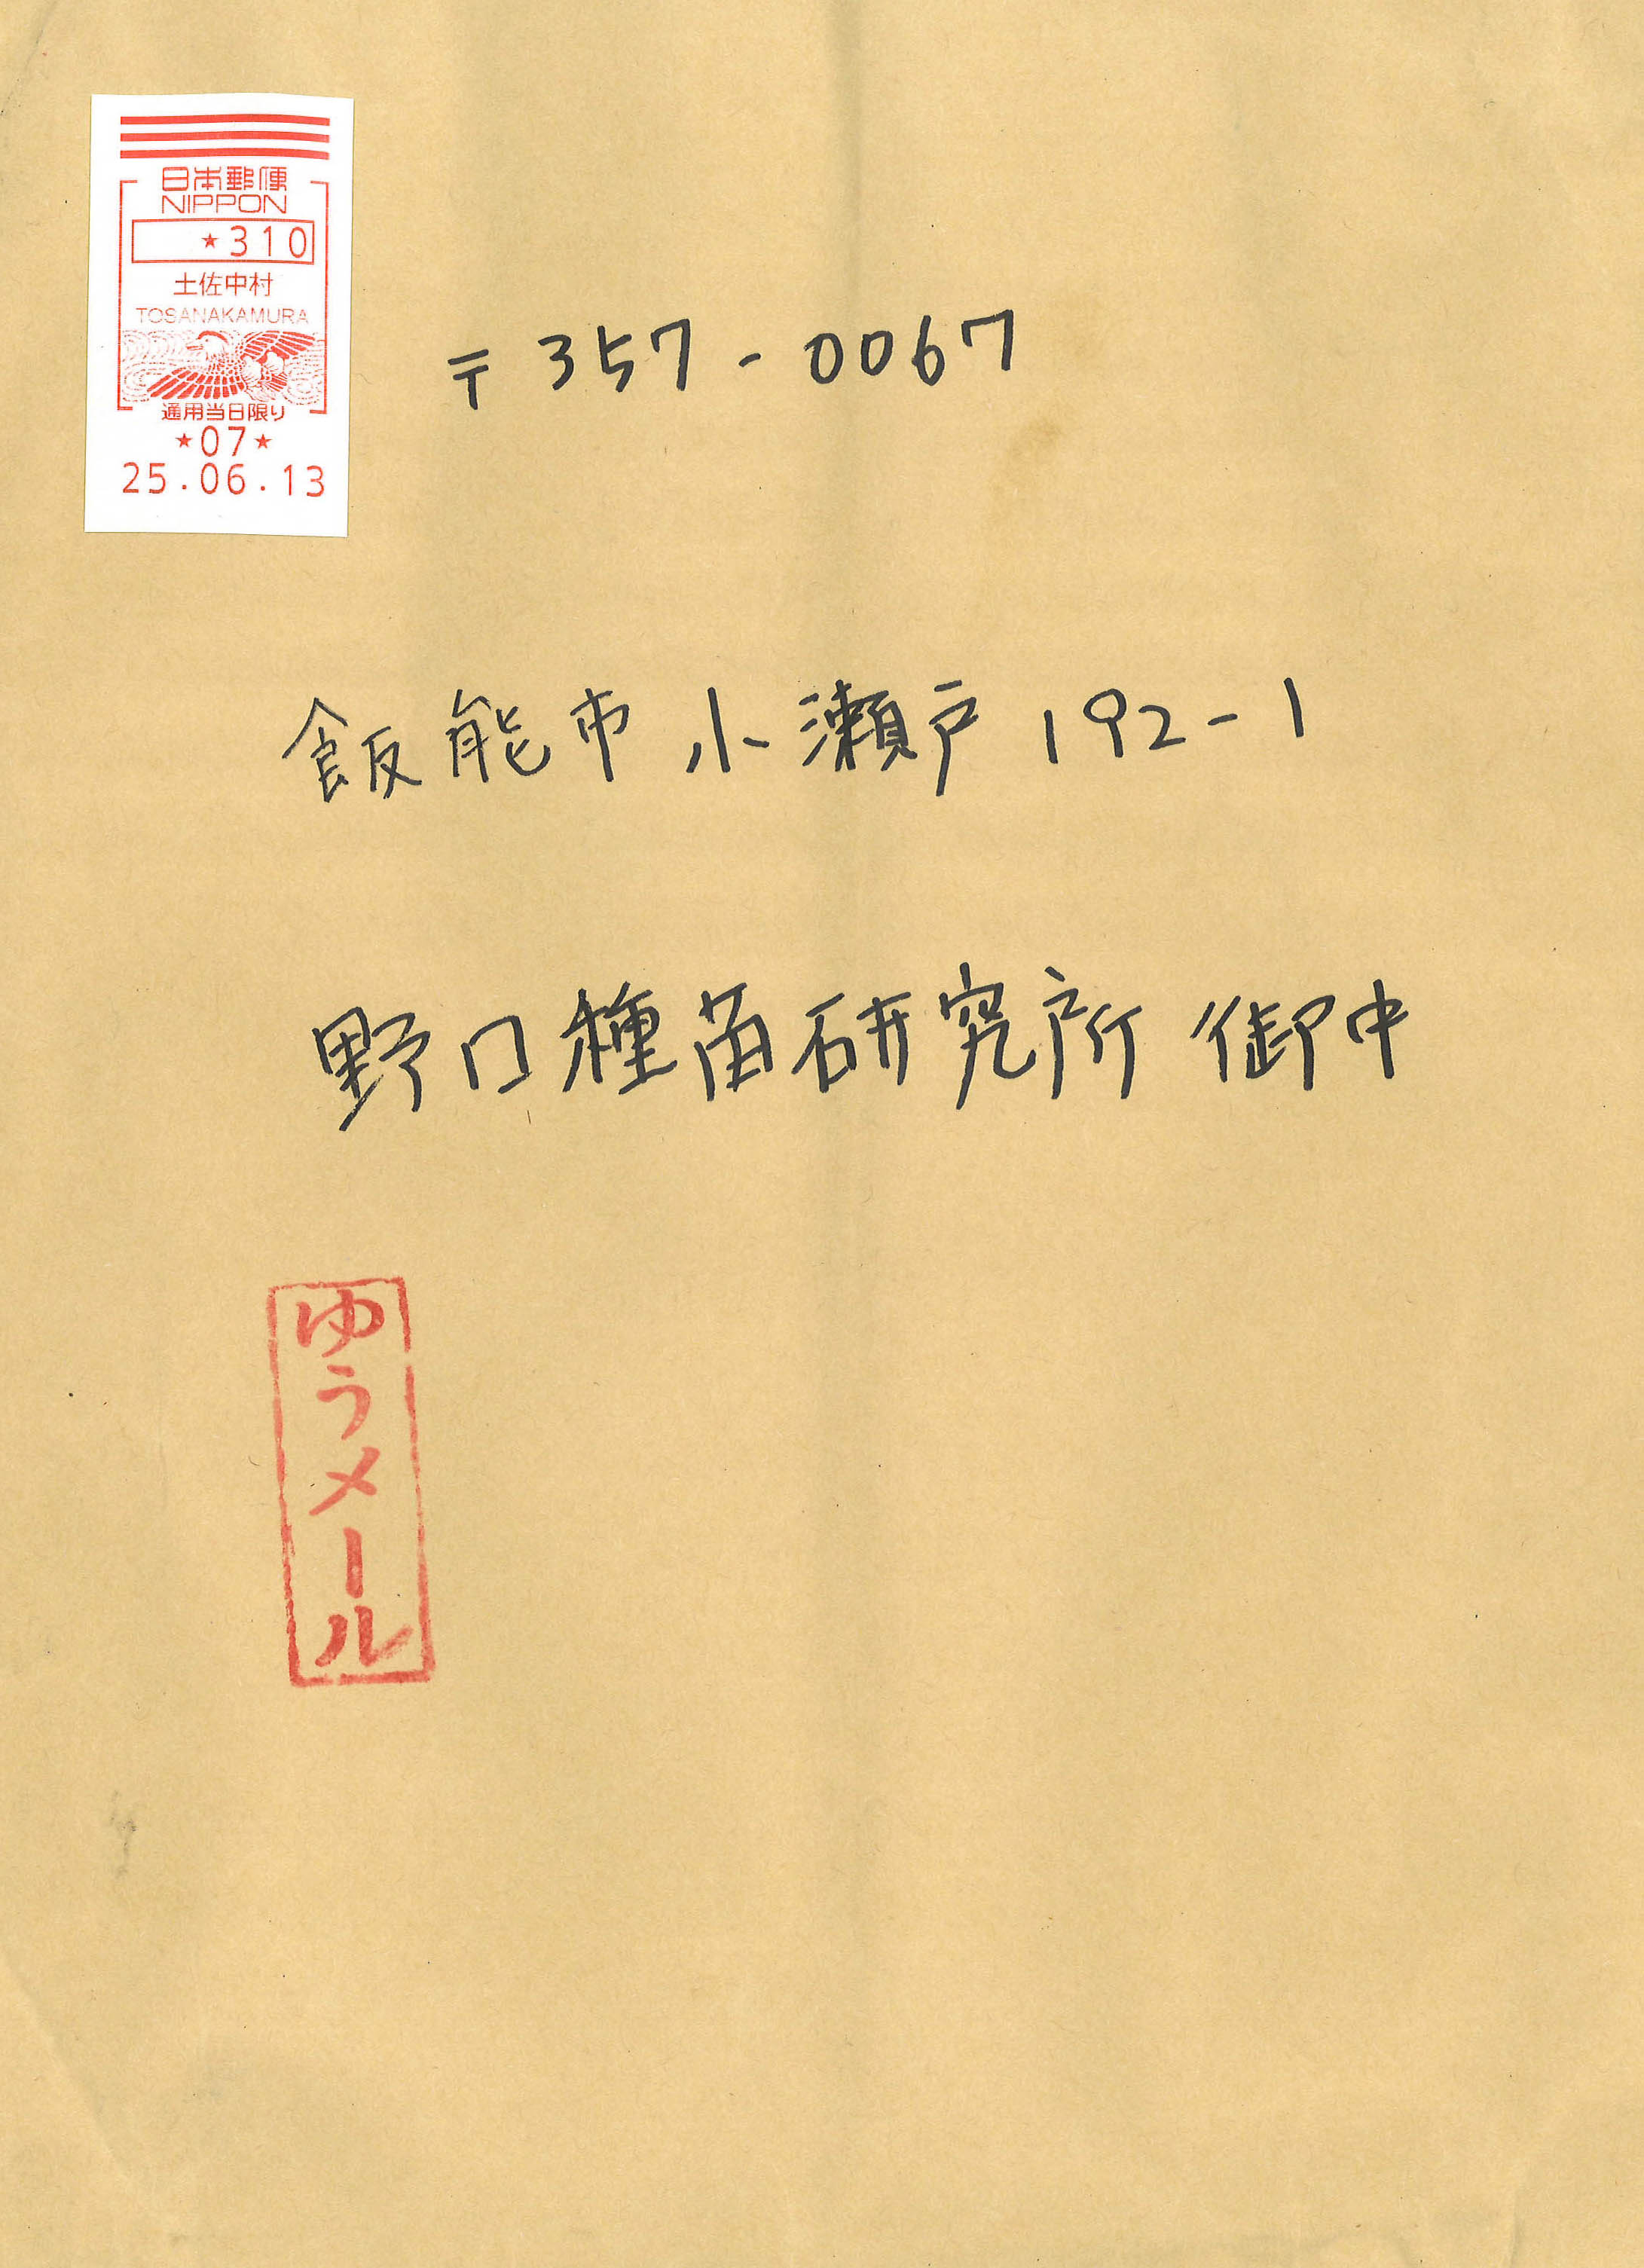 日本郵便
NIPPON
★310
土佐中村
TOSANAKAMURA
通用当日限り
★07★
25.06.13
〒357-0067
飯能市小瀬戸192-1
野口種苗研究所 御中
ゆうメール